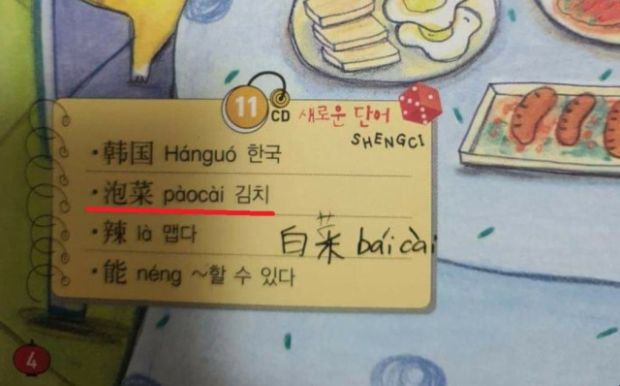 11
CD 새로운 단어
SHENGCI
·韩国 Hánguó 한국
·泡菜 pàocài 김치
·辣 là 맵다
白菜 báicài
·能 néng ～할 수 있다
4